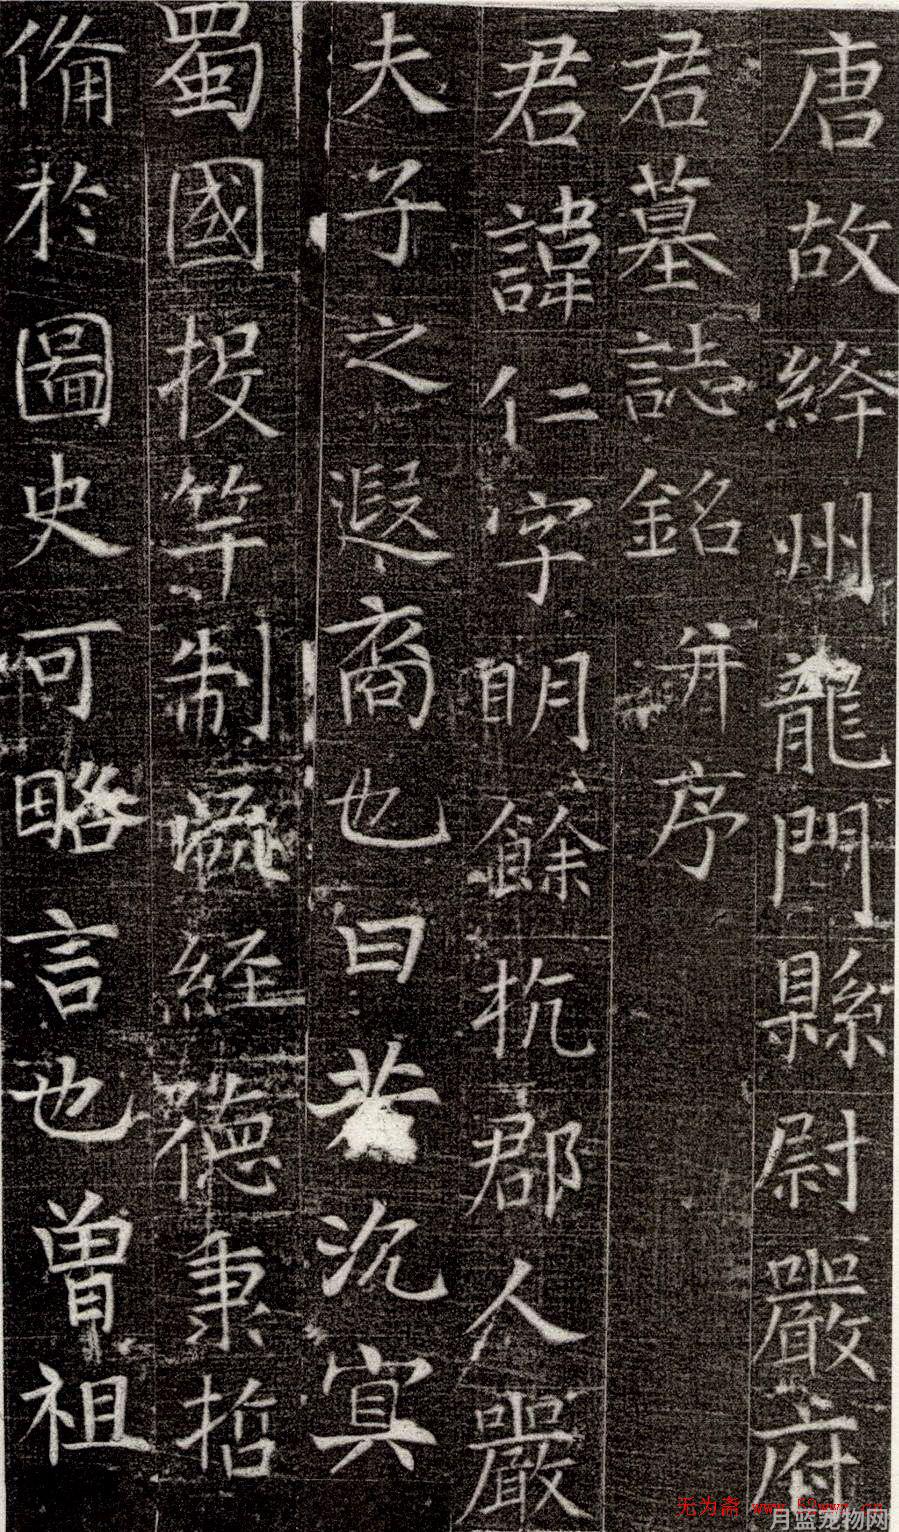 唐故絳州龍門縣尉嚴府
君墓誌銘并序
君諱仁字明餘杭郡人嚴
夫子之遐裔也曰若沉冥
蜀國投竿制　經德秉哲
備於圖史可略言也曾祖
无为斋 www.59wwz.cn
月蓝宠物网